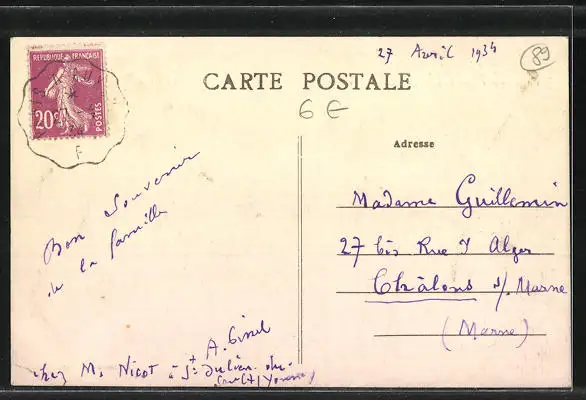 27 Avril 1934
89
RÉPUBLIQUE FRANÇAISE
20c
POSTES
F
CARTE POSTALE
6 €
Adresse
Madame Guillemin
27 bis Rue d'Alger
Châlons s/ Marne
(Marne)
Bon Souvenir
de la famille
A.
chez M. Nicot à St Julien du
Sault (Yonne)